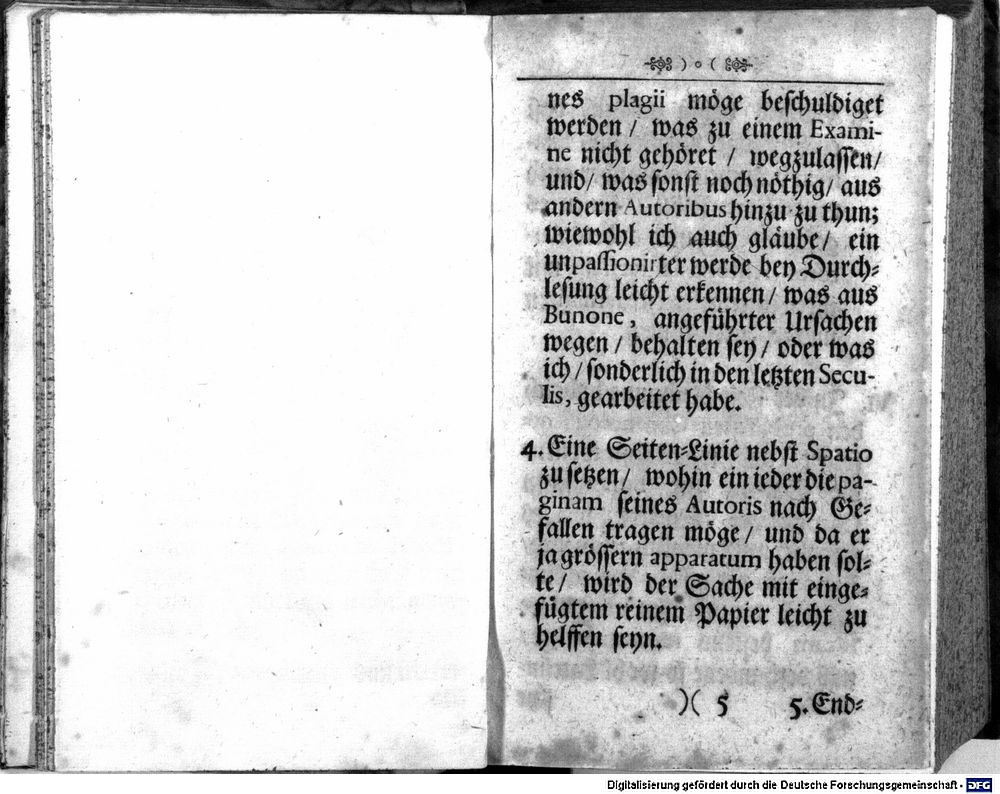 ) o (
nes plagii möge beschuldiget
werden / was zu einem Exami-
ne nicht gehöret / wegzulassen/
und/ was sonst noch nöthig/ aus
andern Autoribus hinzu zu thun;
wiewohl ich auch gläube/ ein
unpassionirter werde bey Durch-
lesung leicht erkennen/ was aus
Bunone, angeführter Ursachen
wegen / behalten sey/ oder was
ich / sonderlich in den letzten Secu-
lis, gearbeitet habe.
4. Eine Seiten-Linie nebst Spatio
zu setzen/ wohin ein ieder die pa-
ginam seines Autoris nach Ge-
fallen tragen möge / und da er
ja grössern apparatum haben sol-
te/ wird der Sache mit einge-
fügtem reinem Papier leicht zu
helffen seyn.
)( 5 5. End-
Digitalisierung gefördert durch die Deutsche Forschungsgemeinschaft - DFG